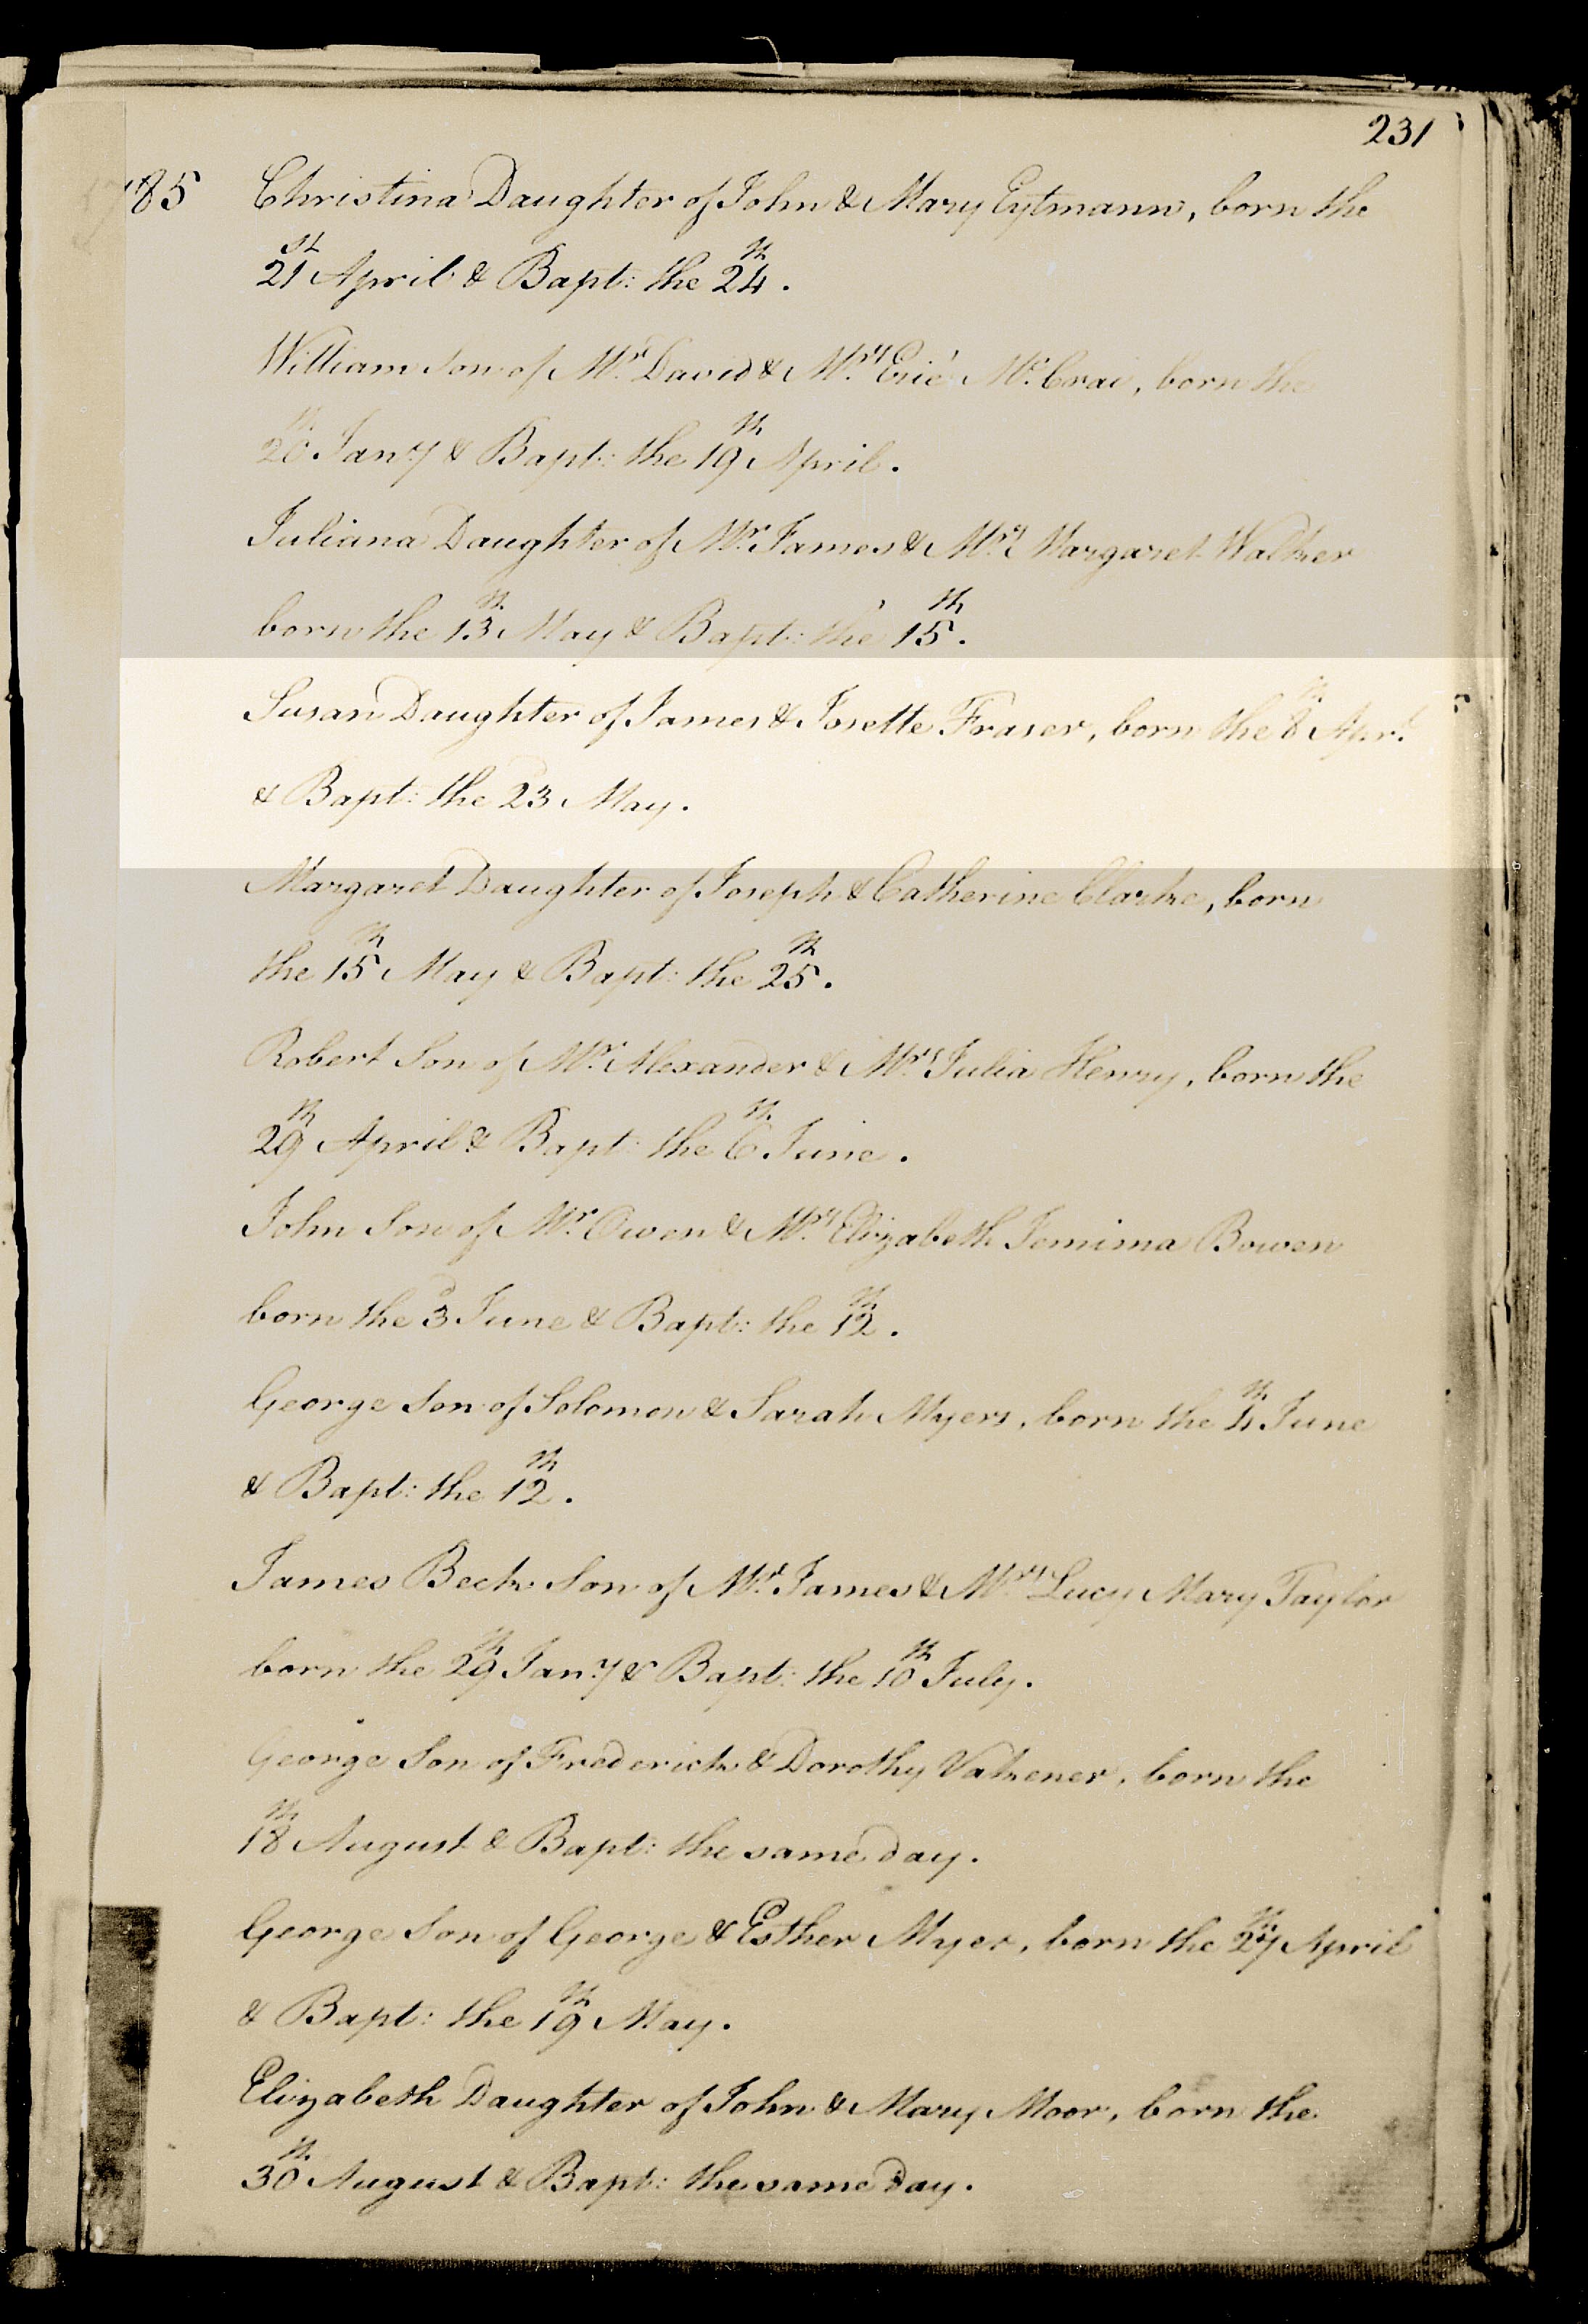 231
185 Christina Daughter of John & Mary Eytmann, born the
21st April & Bapt: the 24th.
William Son of Mr. David & Mrs. McCrae, born the
20th Jany. & Bapt: the 19th April.
Juliana Daughter of Mr. James & Mrs. Margaret Walker
born the 13th May & Bapt: the 15th.
Susan Daughter of James & Josette Fraser, born the 8th Apr:
& Bapt: the 23d May.
Margaret Daughter of Joseph & Catherine Clarke, born
the 15th May & Bapt: the 25th.
Robert Son of Mr. Alexander & Mrs. Julia Henry, born the
29th April & Bapt: the 6th June.
John Son of Mr. Owen & Mrs. Elizabeth Jemima Bowen
born the 3d June & Bapt: the 12th.
George Son of Solomon & Sarah Myers, born the 4th June
& Bapt: the 12th.
James Beck Son of Mr. James & Mrs. Lucy Mary Taylor
born the 29th Jany. & Bapt: the 10th July.
George Son of Frederick & Dorothy Vatkener, born the
18th August & Bapt: the same day.
George Son of George & Esther Myer, born the 27th April
& Bapt: the 19th May.
Elizabeth Daughter of John & Mary Moor, born the
30th August & Bapt: the same day.